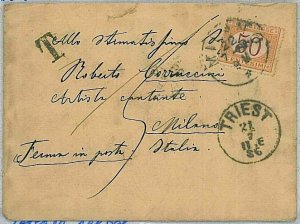 T
Allo Stimatissimo Sig
50
Roberto Corruccini
Artista cantante
Milano
Ferma in posta Italia.
TRIEST
21
7
11 E
86